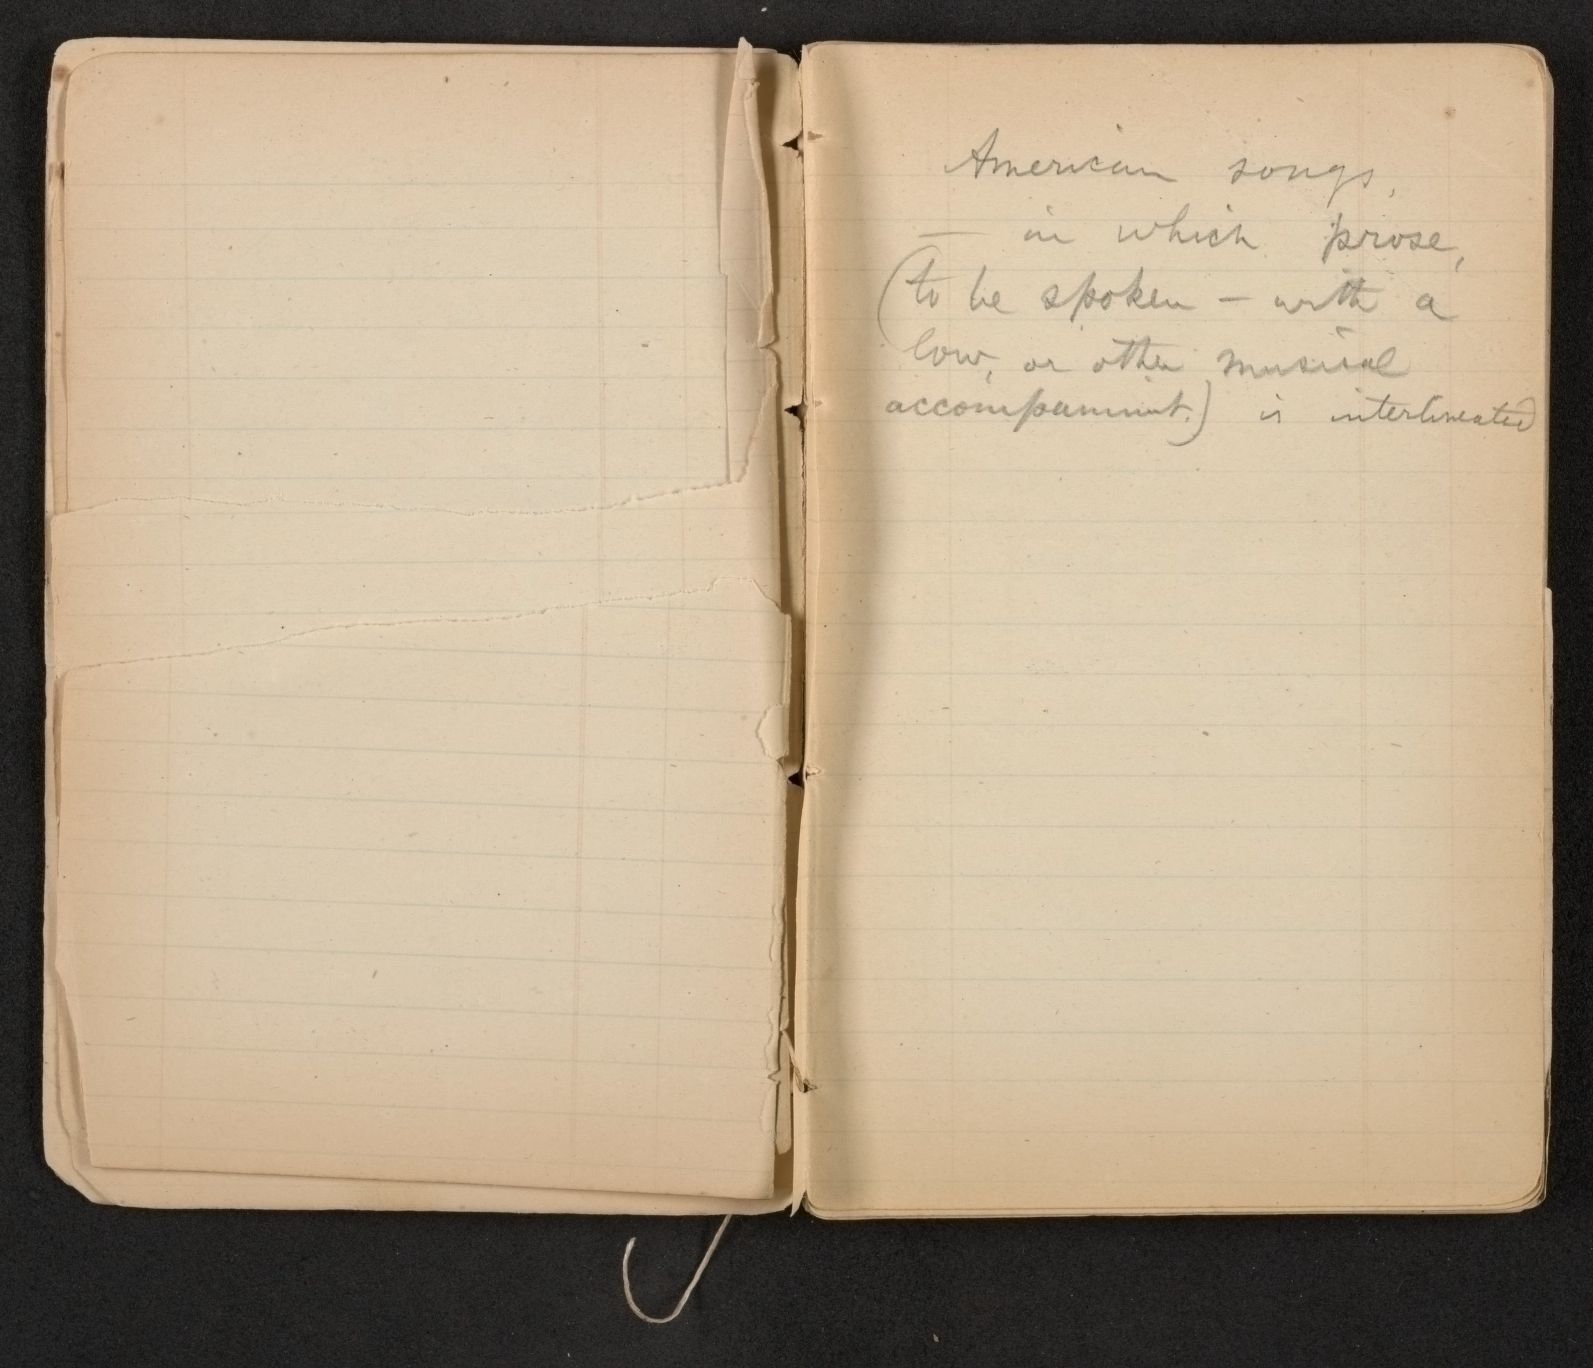 American songs,
— in which prose,
(to be spoken – with a
low, or other musical
accompaniment.) is interlineated